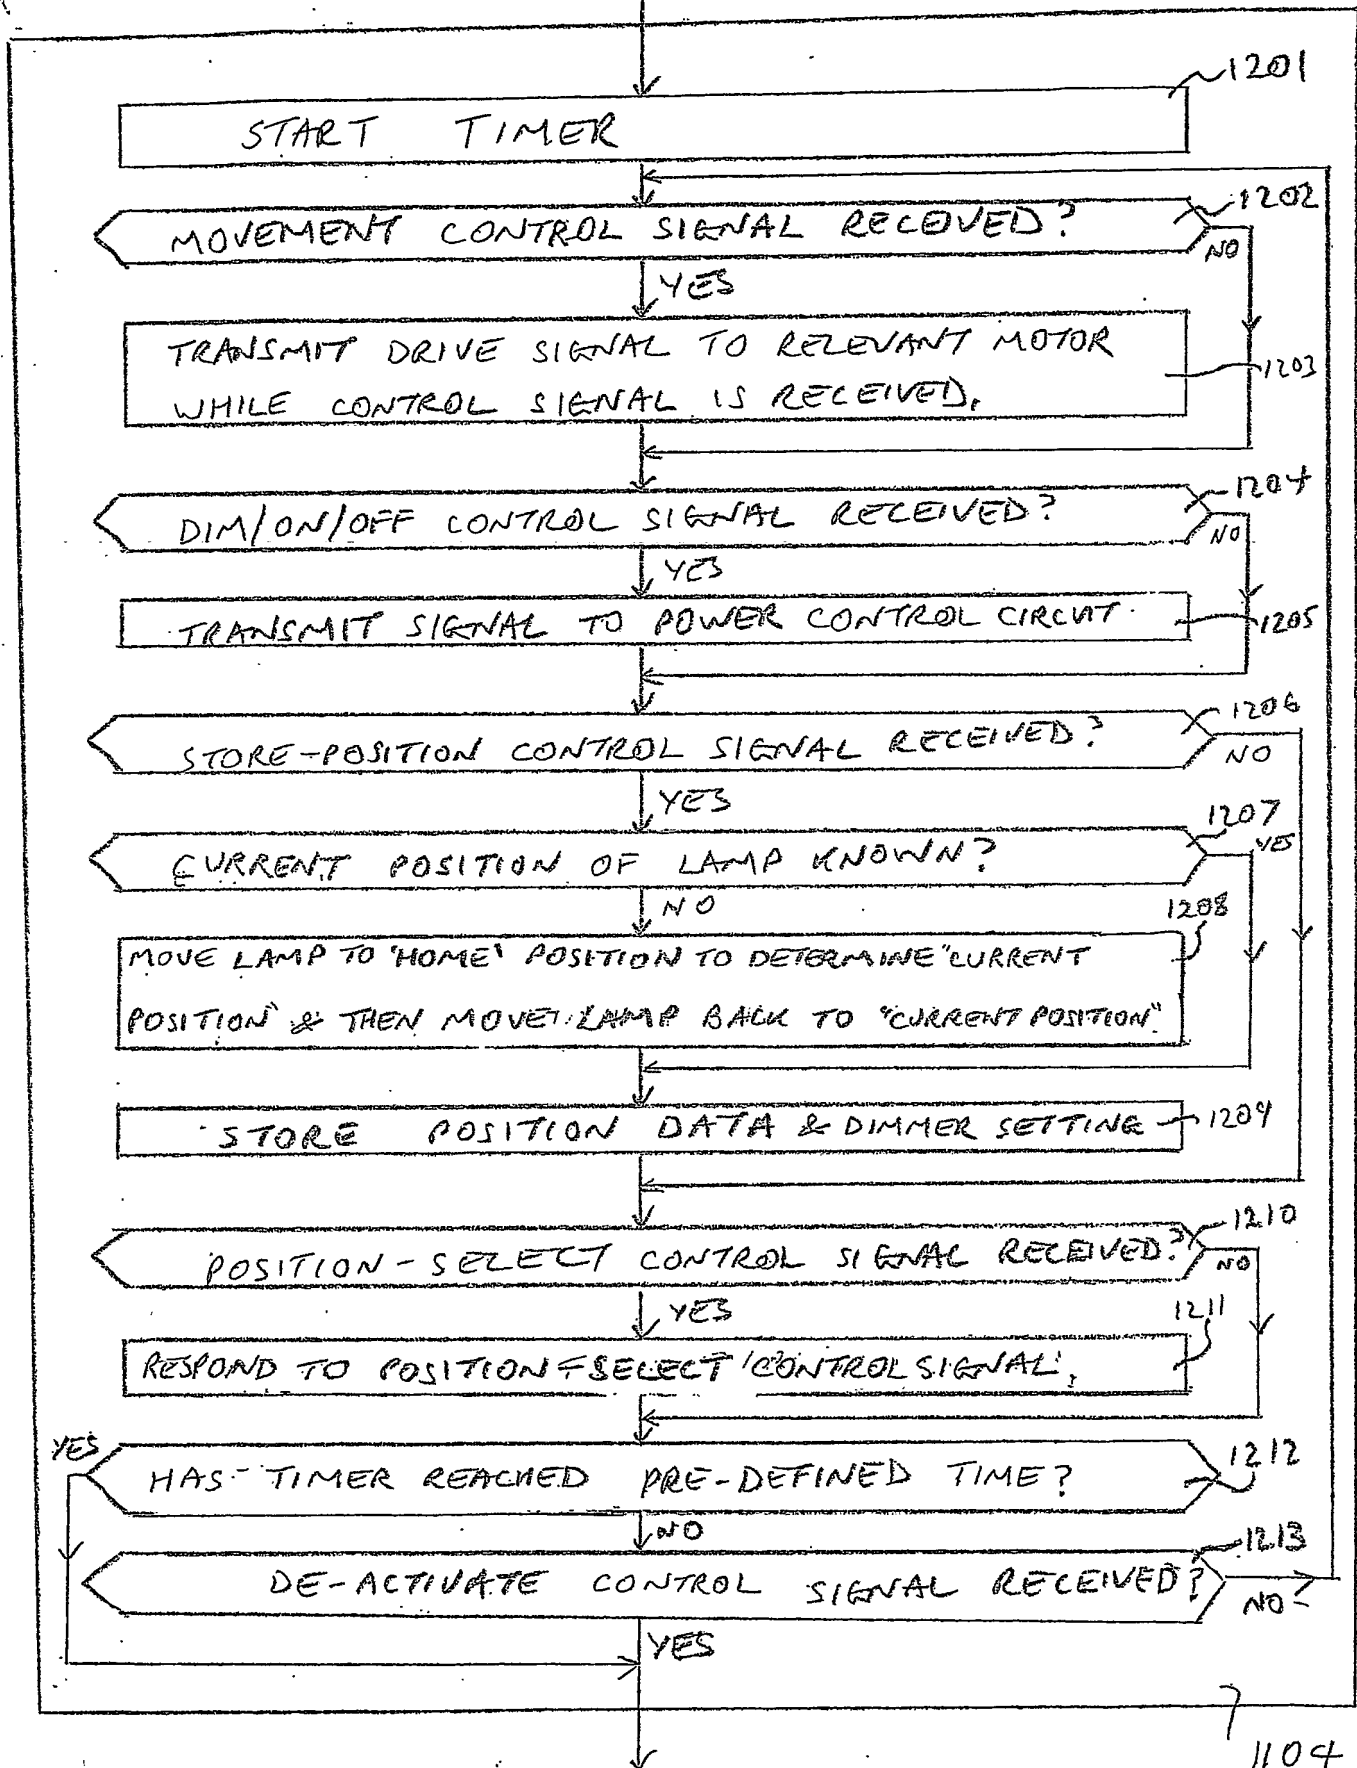 1201
START TIMER
1202
MOVEMENT CONTROL SIGNAL RECEIVED?
NO
YES
TRANSMIT DRIVE SIGNAL TO RELEVANT MOTOR
WHILE CONTROL SIGNAL IS RECEIVED.
1203
1204
DIM/ON/OFF CONTROL SIGNAL RECEIVED?
NO
YES
TRANSMIT SIGNAL TO POWER CONTROL CIRCUIT.
1205
1206
STORE-POSITION CONTROL SIGNAL RECEIVED?
NO
YES
1207
CURRENT POSITION OF LAMP KNOWN?
YES
NO
1208
MOVE LAMP TO 'HOME' POSITION TO DETERMINE "CURRENT
POSITION" & THEN MOVE LAMP BACK TO "CURRENT POSITION".
STORE POSITION DATA & DIMMER SETTING
1209
1210
POSITION-SELECT CONTROL SIGNAL RECEIVED?
NO
YES
1211
RESPOND TO POSITION-SELECT CONTROL SIGNAL.
YES
HAS TIMER REACHED PRE-DEFINED TIME?
1212
NO
1213
DE-ACTIVATE CONTROL SIGNAL RECEIVED?
NO
YES
1104